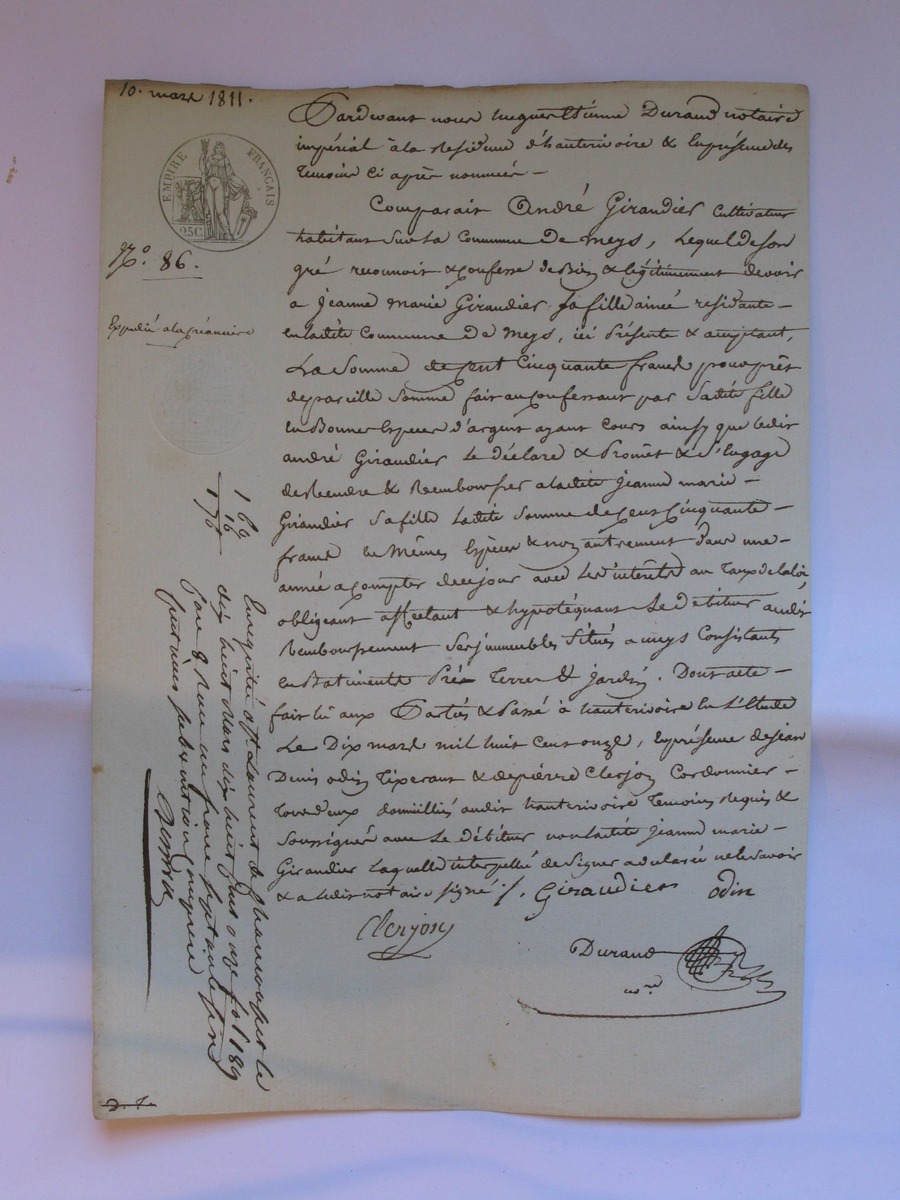 10. mars 1811.
EMPIRE FRANÇAIS
25C
N.º 86.
Expedié a la créancière
Pardevant nous hugues Etienne Durand notaire
impérial à la Residence d'hauterivoire & En présence des
temoins Ci après nommés —
Comparait André Giraudier Cultivateur
habitant Sur la Commune De meys, Lequel de Son
gré reconnoit & Confesse de Bien & légitimement devoir
a Jeanne marie Giraudier Sa fille ainée residante —
en ladite Commune De meys, ici Présente & acceptant,
La Somme de Cent Cinquante francs pour prêt
de pareille Somme fait au Confessant par Sadite fille
En Bonnes Espèces d'argent ayant Cours ainsy que ledit
andré Giraudier Le déclare & Promet & S'Engage
de Rendre & Rembourser a ladite Jeanne marie —
Giraudier Sa fille Ladite Somme de Cent Cinquante —
francs En Mêmes Espèces & non autrement dans une —
année a Compter de ce jour avec Les intérêts au Taux de la loi,
obligeant affectant & hypotéquant Le Débiteur audit
Remboursement Ses immeubles Situés a meys Consistants
en Batiments Prés Terres & Jardin. Dont acte —
fait lû aux Parties & Passé à hauterivoire En l'Etude
Le Dix mars mil huit Cent onze, En présence de Jean
Denis odin Tixerant & de pierre Clerjon Cordonnier —
Tous deux domiciliés audit hauterivoire Temoins Requis &
Soussignés avec Le Débiteur non ladite Jeanne marie —
Giraudier Laquelle interpellée de Signer a déclaré ne le Savoir
& a Ledit notaire Signé ./. Giraudier odin
Clerjon
Durand
n.re
1 69
16
1 76
Enregistré à St. Laurent de Chamousset le
dix huit Mars dix huit cent onze fo 189
Case 8 Reçu un franc Soixante Seize
centimes Subvention comprise